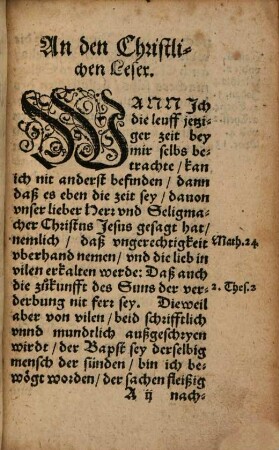 An den Christli-
chen Leser.
WANN Ich
die leuff jetzi-
ger zeit bey
mir selbs be-
trachte / kan
ich nit anderst befinden / dann
daß es eben die zeit sey / dauon
vnser lieber Herr vnd Seligma-
cher Christus Jesus gesagt hat /
nemlich / daß vngerechtigkeit Math. 24.
vberhand nemen / vnd die lieb in
vilen erkalten werde: Daß auch
die zůkunfft des Suns der ver- 2. Thes. 2
derbung nit fert sey. Dieweil
aber von vilen / beid schrifftlich
vnnd mundtlich außgeschryen
wirdt / der Bapst sey derselbig
mensch der sünden / bin ich be-
wögt worden / der sachen fleißig
A ij nach-